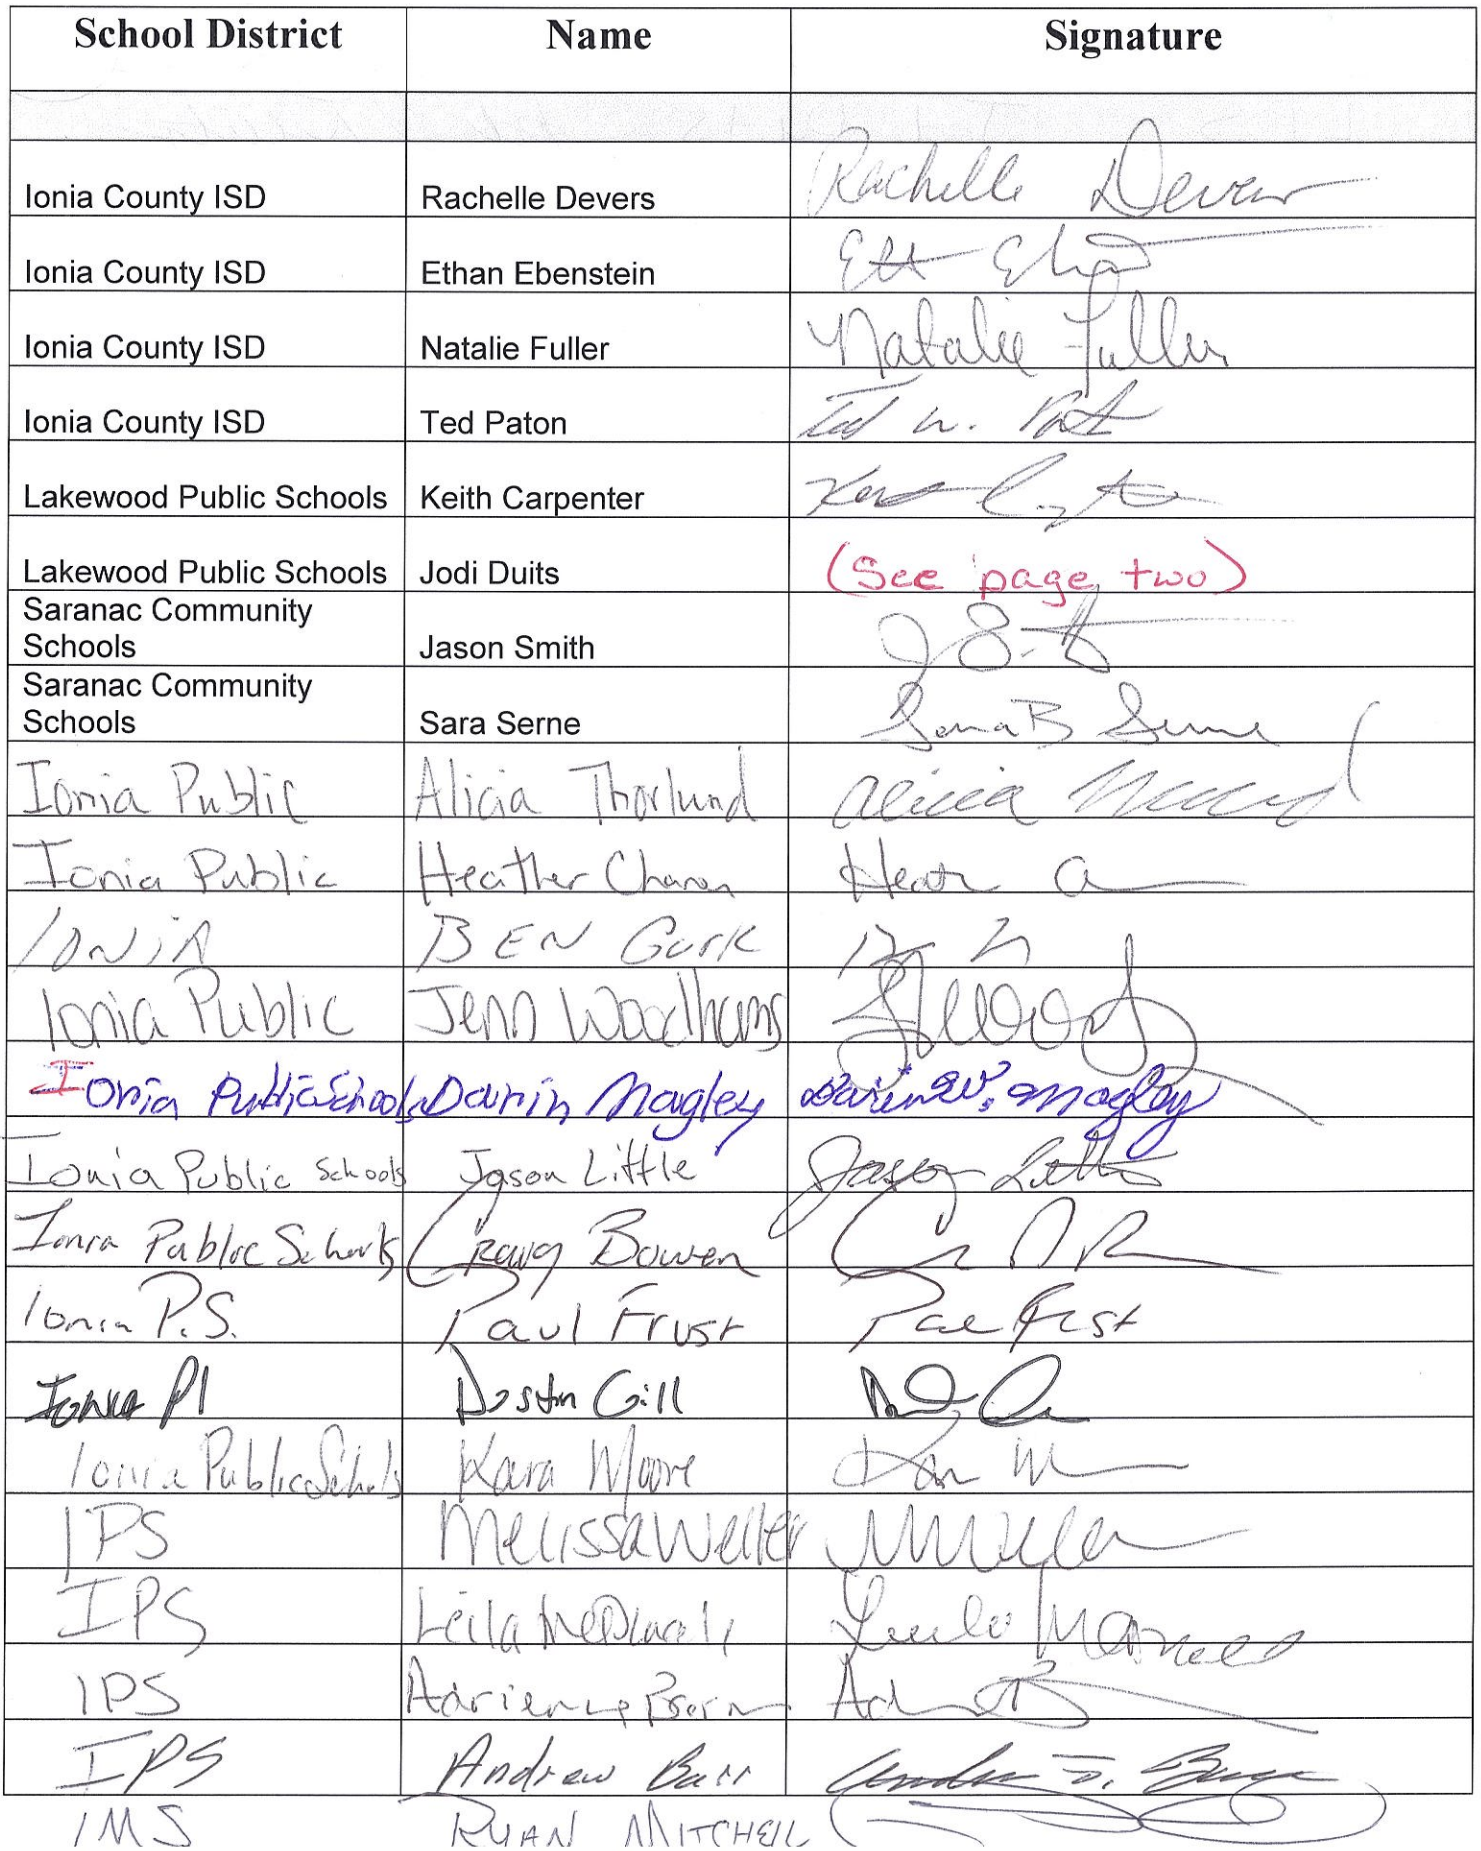 School District Name Signature
Ionia County ISD Rachelle Devers Rachelle Devers
Ionia County ISD Ethan Ebenstein
Ionia County ISD Natalie Fuller Natalie Fuller
Ionia County ISD Ted Paton Ted W. Paton
Lakewood Public Schools Keith Carpenter
Lakewood Public Schools Jodi Duits (see page two)
Saranac Community
Schools Jason Smith
Saranac Community
Schools Sara Serne Sara B Serne
Ionia Public Alicia Thorlund Alicia
Ionia Public Heather Charon
IONIA BEN GURK
Ionia Public Jenn Woodhams
Ionia Public Schools Darin Magley Darin W. Magley
Ionia Public Schools Jason Little Jason Little
Ionia Public Schools Craig Bowen
Ionia P.S. Paul Frust
Ionia Dustin Gill
Ionia Public Schools Kara Moore
IPS Melissa Weller
IPS Leila
IPS Adrienne
IPS Andrew Barr
IMS RYAN MITCHELL